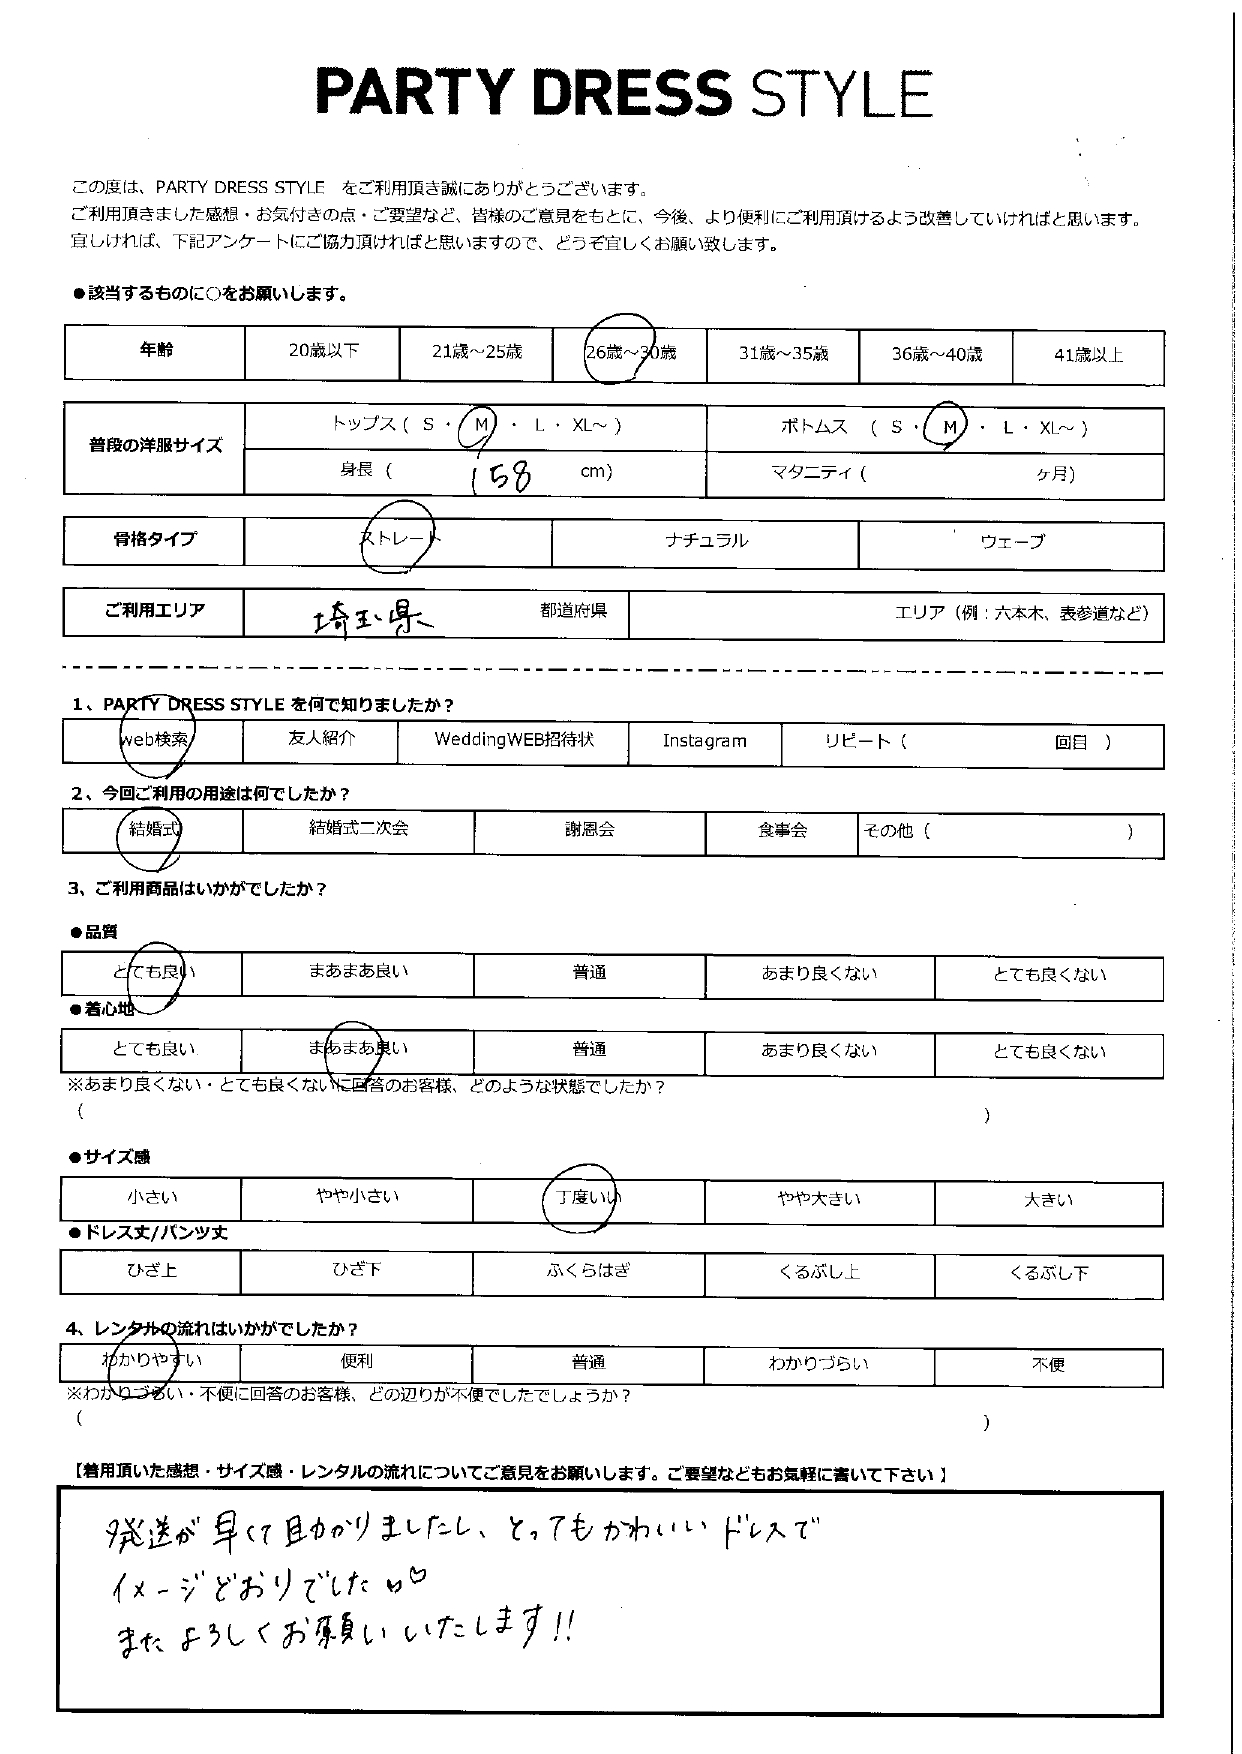 PARTY DRESS STYLE
この度は、PARTY DRESS STYLE をご利用頂き誠にありがとうございます。
ご利用頂きました感想・お気付きの点・ご要望など、皆様のご意見をもとに、今後、より便利にご利用頂けるよう改善していければと思います。
宜しければ、下記アンケートにご協力頂ければと思いますので、どうぞ宜しくお願い致します。
●該当するものに○をお願いします。
年齢 20歳以下 21歳～25歳 26歳～30歳 31歳～35歳 36歳～40歳 41歳以上
普段の洋服サイズ トップス ( S ・ M ・ L ・ XL～ ) ボトムス ( S ・ M ・ L ・ XL～ )
身長 ( 158 cm) マタニティ ( ヶ月)
骨格タイプ ストレート ナチュラル ウェーブ
ご利用エリア 埼玉県 都道府県 エリア（例：六本木、表参道など）
1、PARTY DRESS STYLE を何で知りましたか？
web検索 友人紹介 WeddingWEB招待状 Instagram リピート ( 回目 )
2、今回ご利用の用途は何でしたか？
結婚式 結婚式二次会 謝恩会 食事会 その他 ( )
3、ご利用商品はいかがでしたか？
●品質
とても良い まあまあ良い 普通 あまり良くない とても良くない
●着心地
とても良い まあまあ良い 普通 あまり良くない とても良くない
※あまり良くない・とても良くないに回答のお客様、どのような状態でしたか？
( )
●サイズ感
小さい やや小さい 丁度いい やや大きい 大きい
●ドレス丈/パンツ丈
ひざ上 ひざ下 ふくらはぎ くるぶし上 くるぶし下
4、レンタルの流れはいかがでしたか？
わかりやすい 便利 普通 わかりづらい 不便
※わかりづらい・不便に回答のお客様、どの辺りが不便でしたでしょうか？
( )
【着用頂いた感想・サイズ感・レンタルの流れについてご意見をお願いします。ご要望などもお気軽に書いて下さい】
発送が早くて助かりましたし、とってもかわいいドレスで
イメージどおりでした♡♡
またよろしくお願いいたします!!